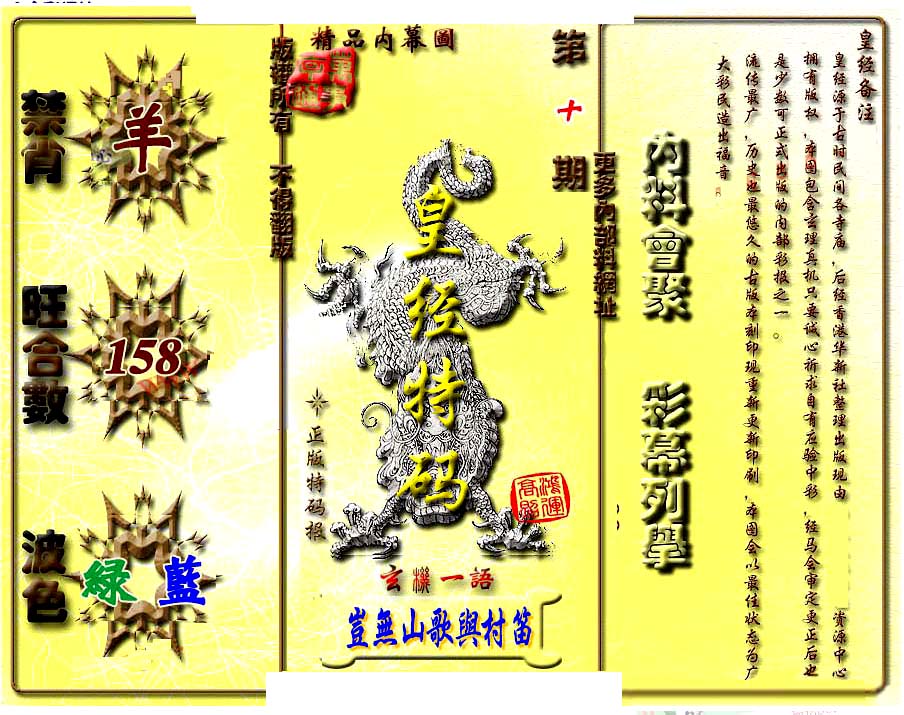 禁肖
羊
旺合數
158
波色
綠 藍
精品内幕圖
版權所有 不得翻版
第
十
期
皇经特码
正版特码报
鴻運
高照
玄機一語
豈無山歌與村笛
更多内部料網址
内料會聚 彩幕列舉
皇经备注
皇经源于古时民间各寺庙，后经香港华新社整理出版现由 资源中心
拥有版权，本图包含玄理真机只要诚心祈求自有应验中彩，经马会审定更正后也
是少数可正式出版的内部彩报之一。
流传最广，历史也最悠久的古版本刻印现重新更新印刷，本图会以最佳状态为广
大彩民造出福音